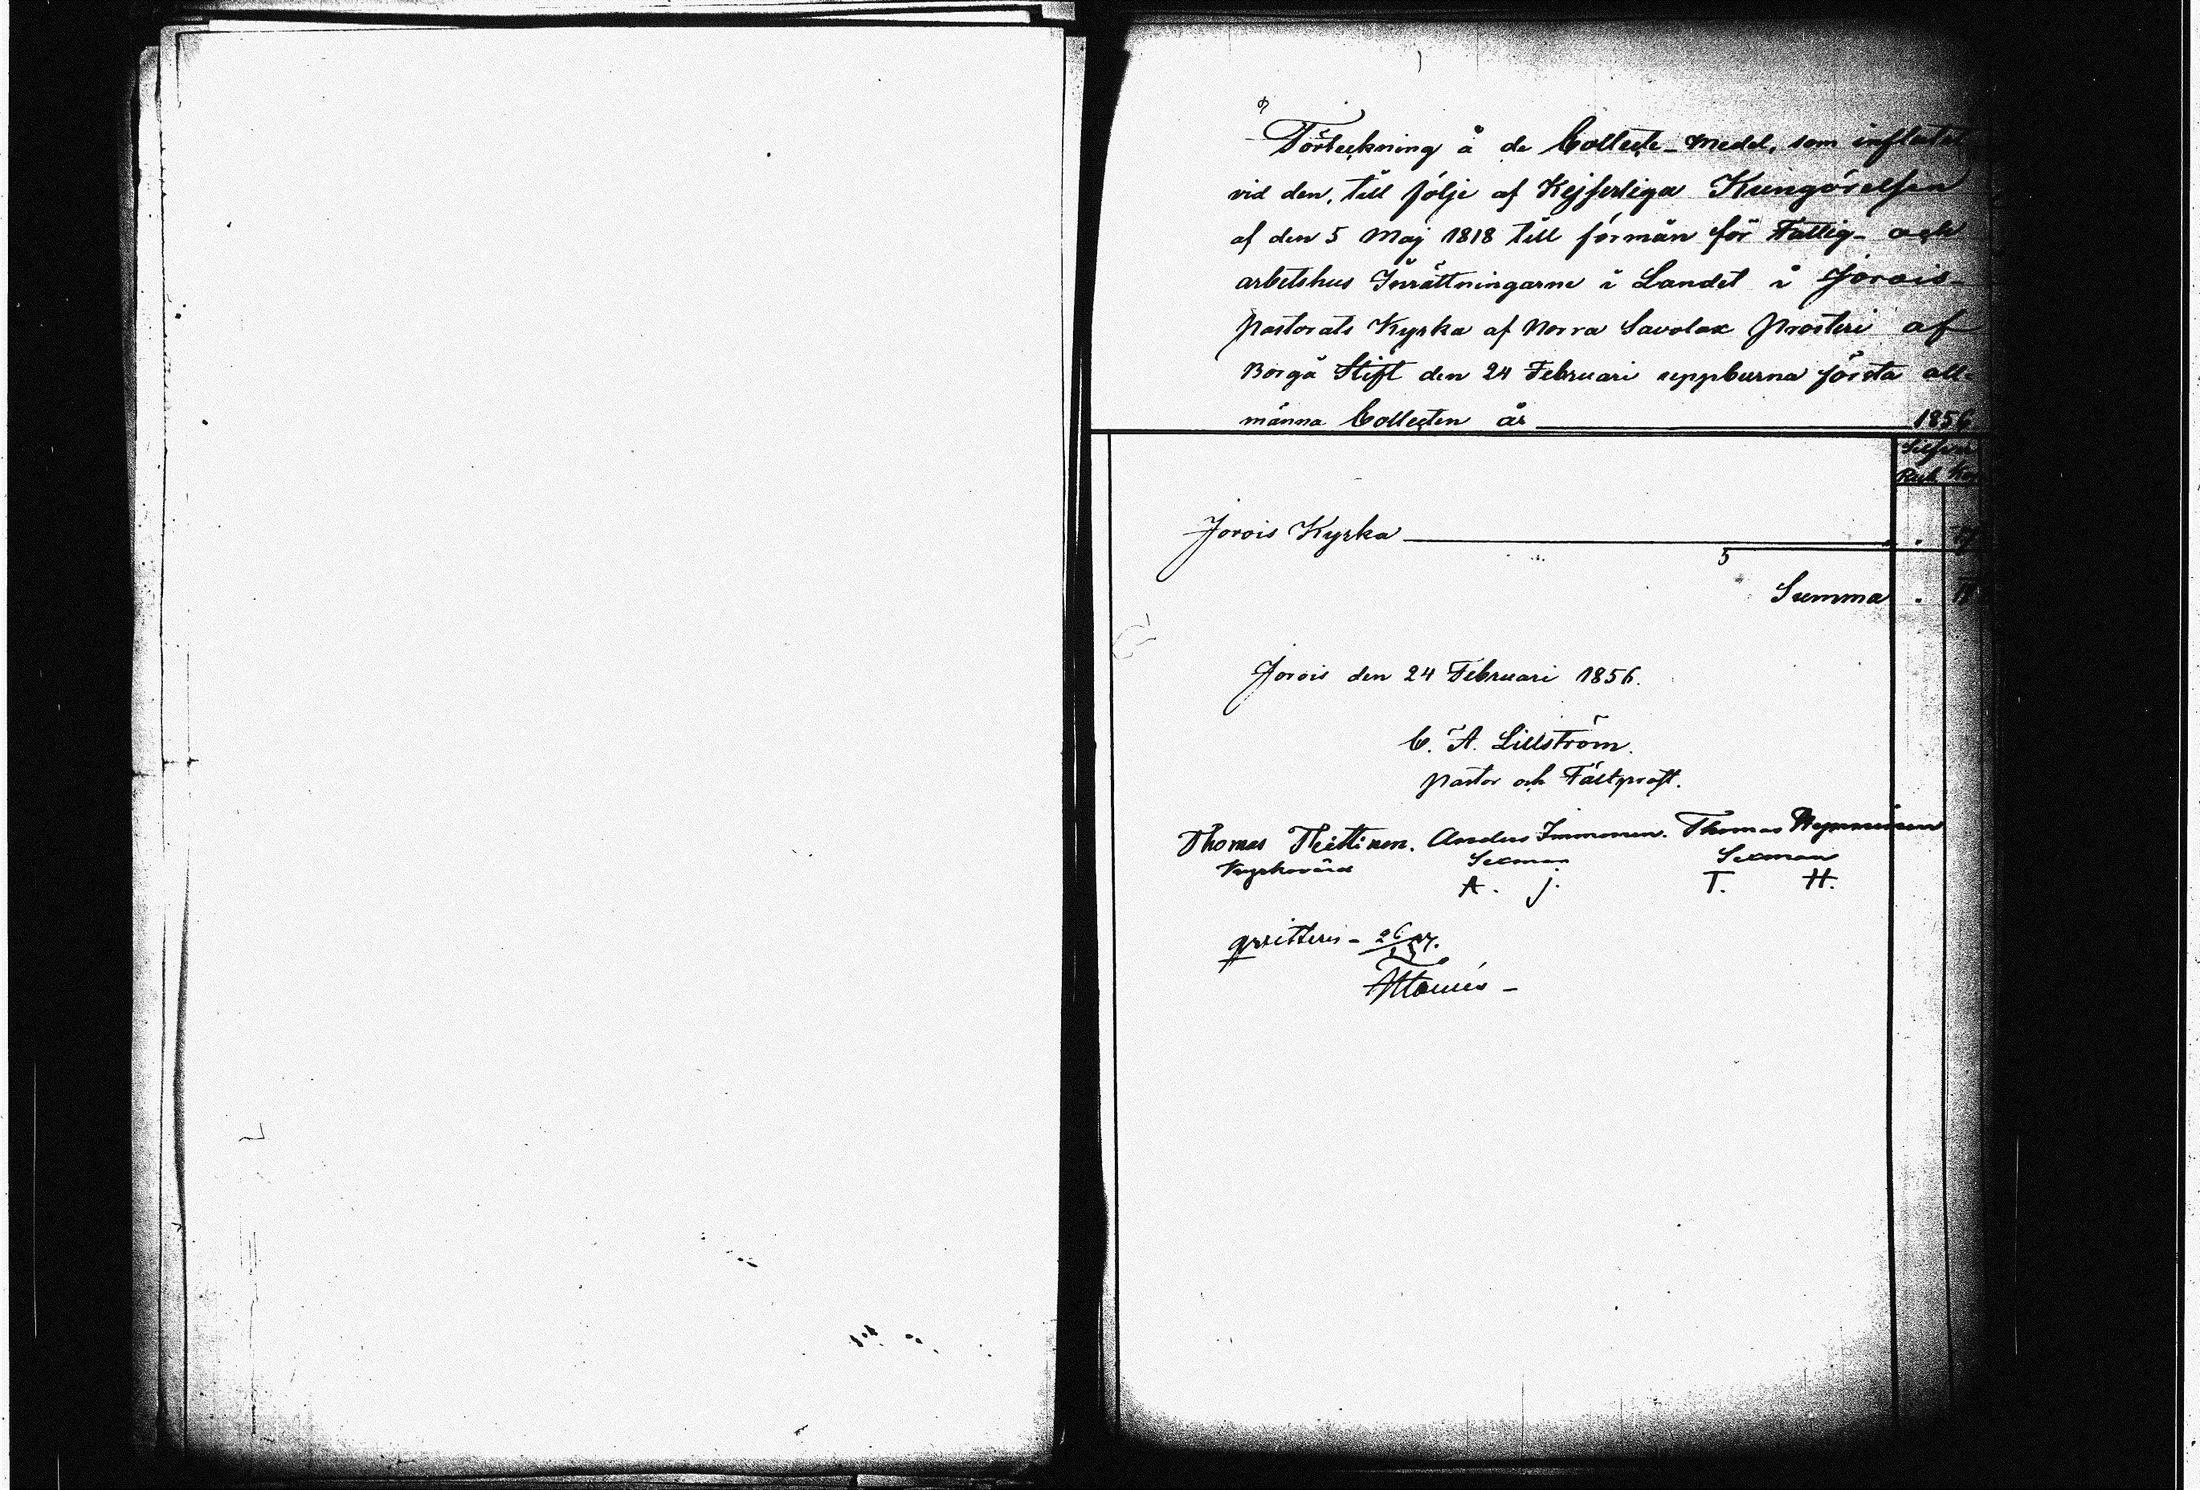 Förteckning å de Collecte-Medel, som influtit
vid den, till följe af Kejserliga Kungörelsen
af den 5 Maj 1818 till förmån för Fattig- och
arbetshus Inrättningarne i Landet i Jorois
Pastorats Kyrka af Norra Savolax Prosteri af
Borgå Stift den 24 Februari uppburna första all-
männa Collecten år 1856.
Silfver
Rub. Kop
Jorois Kyrka
Summa
Jorois den 24 Februari 1856.
C. A. Lillström.
Pastor och Fältprost.
Thomas Tiettinen. Anders Immonen. Thomas
Kyrkovärd Sexman Sexman
A. J. T. H.
qvitteris